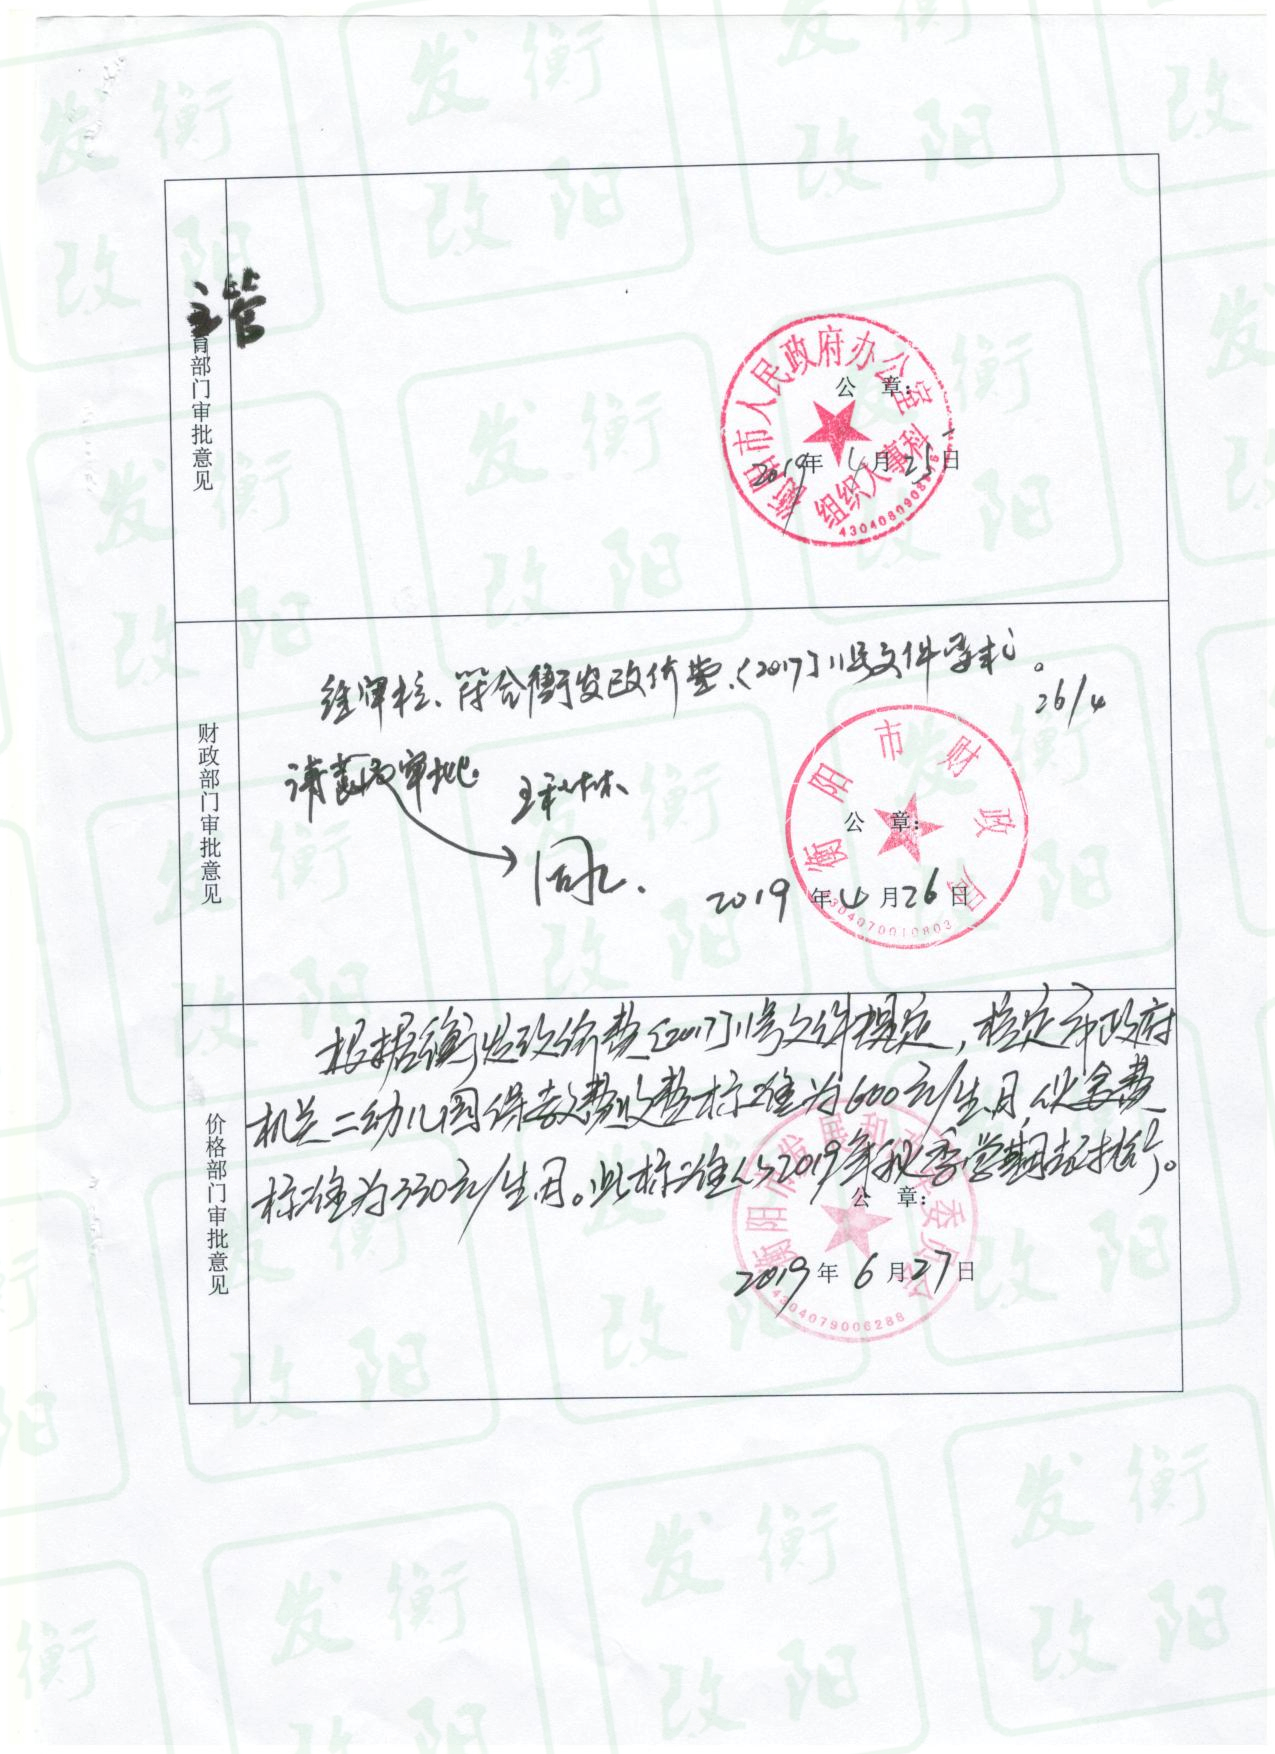 主管
育部门审批意见
衡阳市人民政府办公室
组织人事科
公 章:
2019年4月25日
财政部门审批意见
经审核、符合衡发改价费〔2017〕11号文件要求。
26/4
请 审批.
同意.
衡阳市财政局
公 章:
2019年4月26日
4304070010803
价格部门审批意见
根据衡发改价费〔2017〕11号文件规定,核定市政府
机关二幼儿园保教费收费标准为600元/生.月,伙食费
标准为330元/生.月。此标准从2019年秋季学期起执行。
衡阳市发展和改革委员会
公 章:
2019年6月27日
4304079006288
衡阳发改